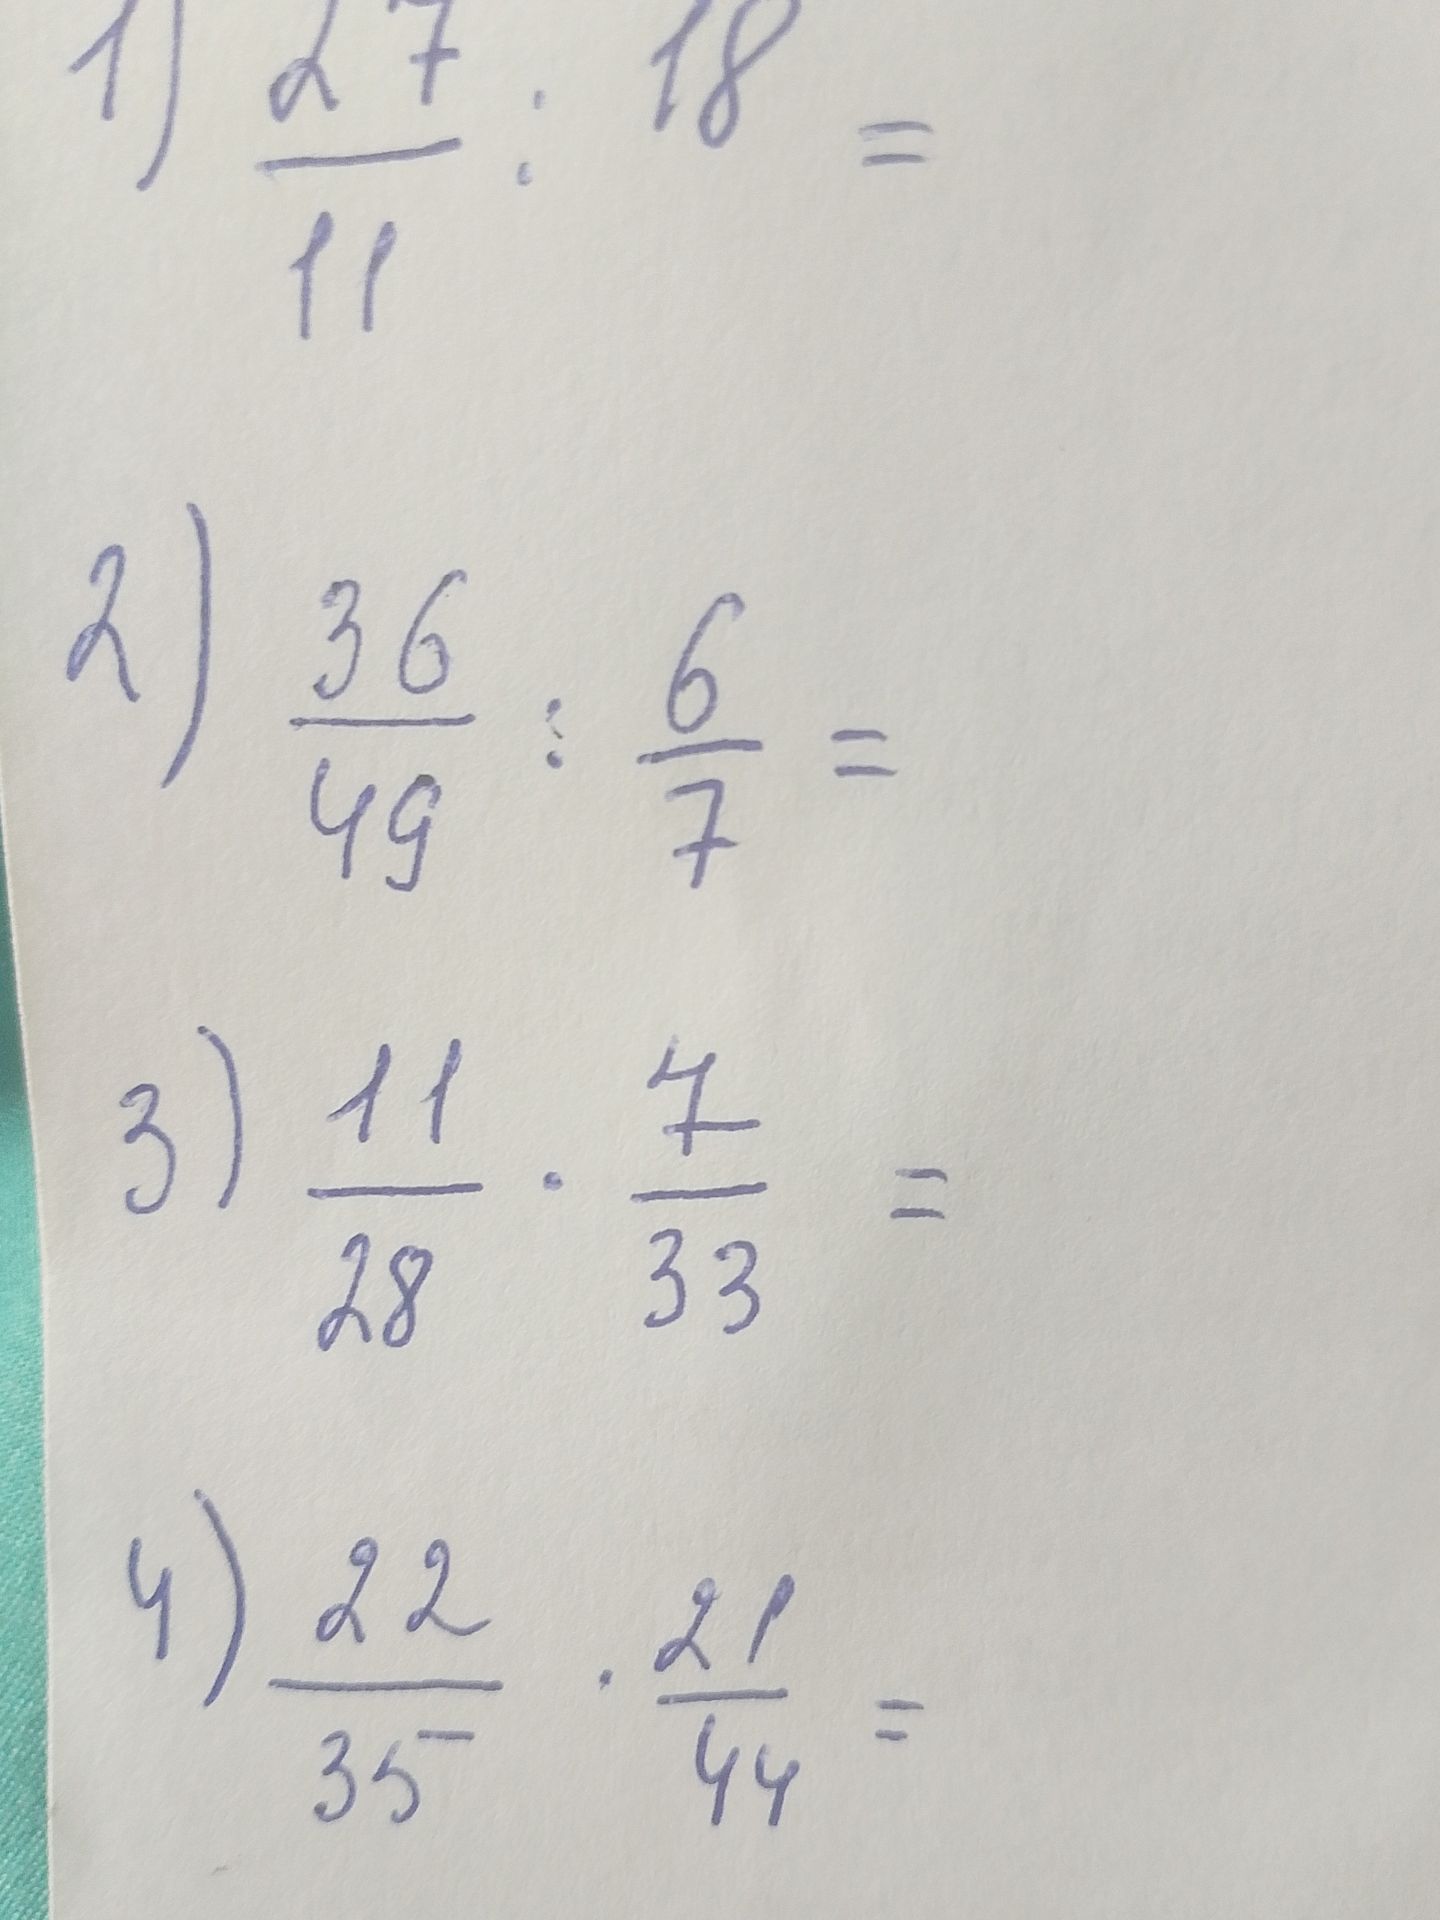 1) 27/11 : 18 =
2) 36/49 : 6/7 =
3) 11/28 · 7/33 =
4) 22/35 · 21/44 =